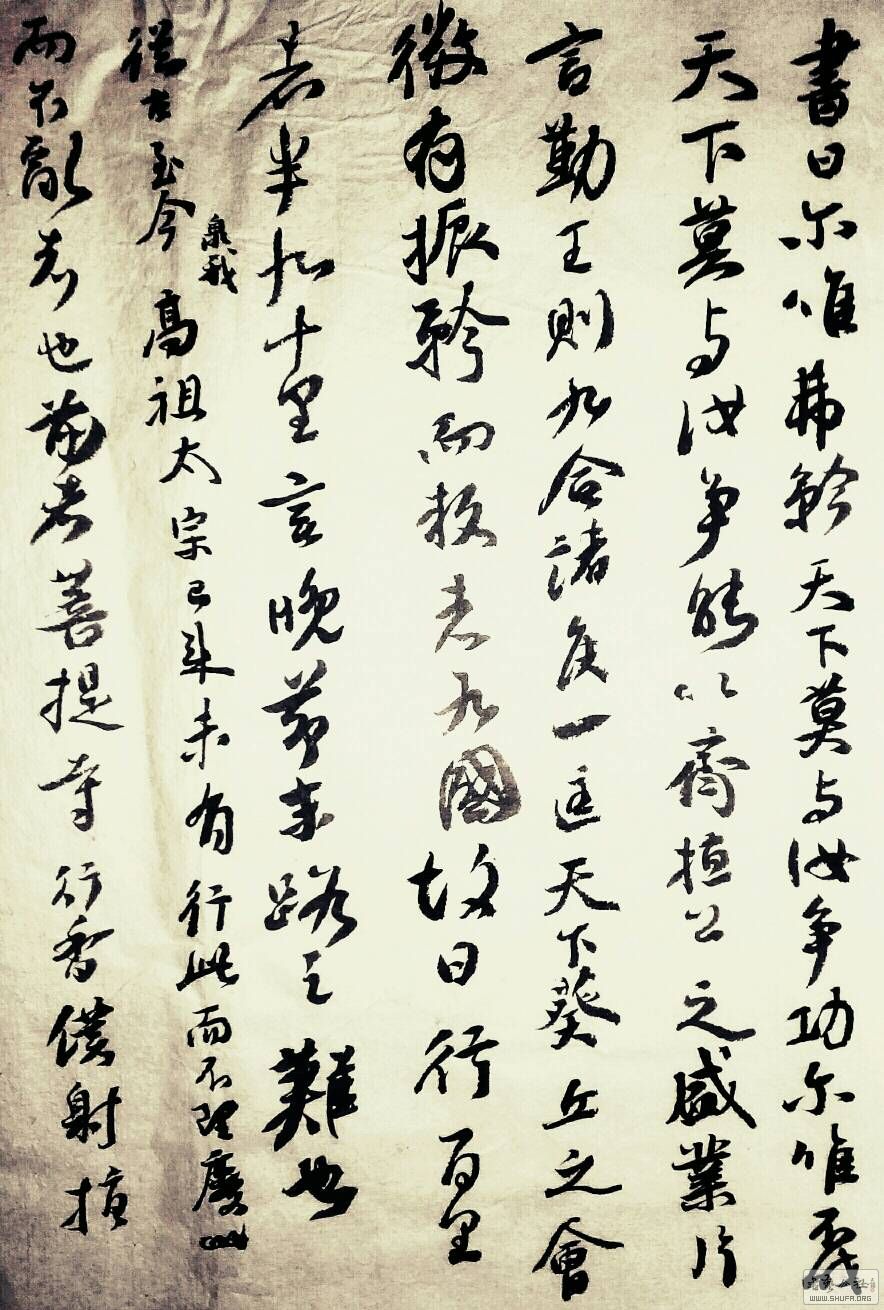 書曰尔唯弗矜天下莫与汝争功尔唯不伐
天下莫与汝争能以齊桓公之盛業片
言勤王則九合諸侯一匡天下葵丘之會
微有振矜而叛者九國故曰行百里
者半九十里言晚節末路之難也
從古至今臮我高祖太宗已来未有行此而不理廢此
而不亂者也前者菩提寺行香僕射指
WWW.SHUFA.ORG